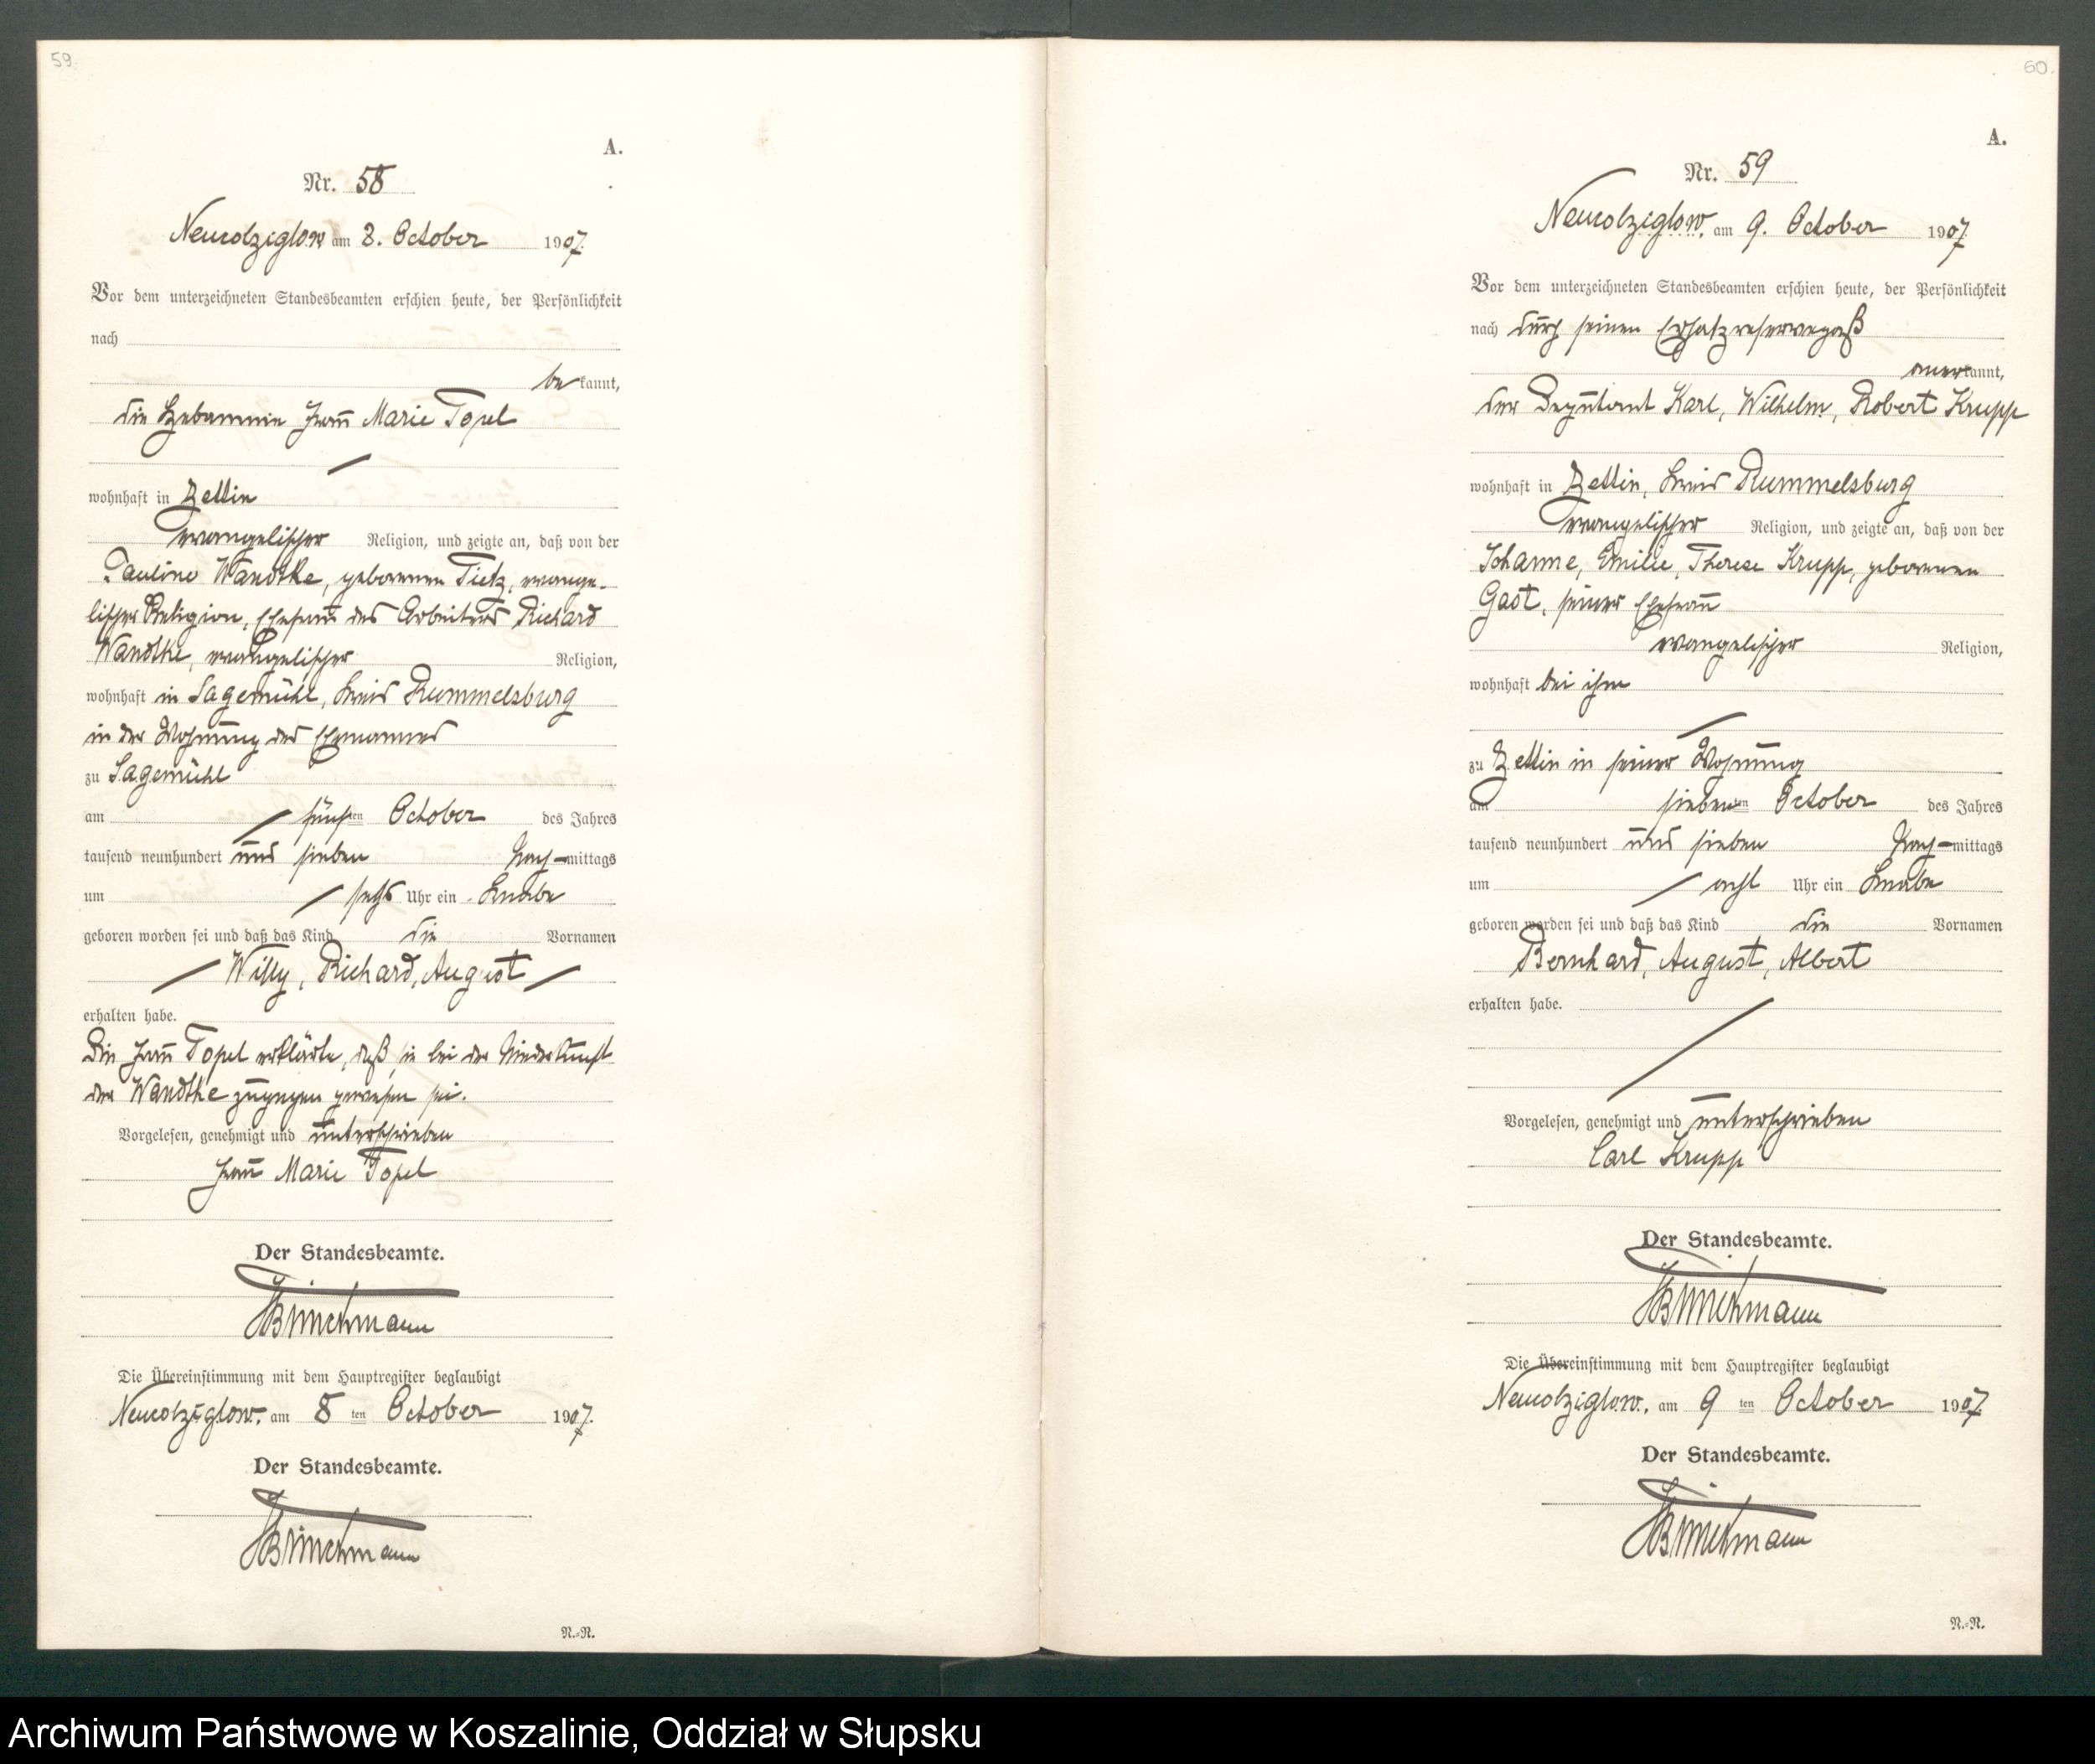 59.
A.
Nr. 58
Neucolziglow am 8. October 1907.
Vor dem unterzeichneten Standesbeamten erschien heute, der Persönlichkeit
nach
bekannt,
die Hebamme Frau Marie Topel
wohnhaft in Zettin
evangelischer Religion, und zeigte an, daß von der
Pauline Wandtke, geborenen Tietz, evange-
lischer Religion, Ehefrau des Arbeiters Richard
Wandtke, evangelischer Religion,
wohnhaft in Sagemühl, Kreis Rummelsburg
in der Wohnung des Ehemannes
zu Sagemühl
am fünften October des Jahres
tausend neunhundert und sieben Nach-mittags
um sechs Uhr ein Knabe
geboren worden sei und daß das Kind die Vornamen
Willy, Richard, August
erhalten habe.
Die Frau Topel erklärte, daß sie bei der Niederkunft
der Wandtke zugegen gewesen sei.
Vorgelesen, genehmigt und unterschrieben
Frau Marie Topel
Der Standesbeamte.
Die Übereinstimmung mit dem Hauptregister beglaubigt
Neucolziglow, am 8 ten October 1907.
Der Standesbeamte.
N.-N.
60.
A.
Nr. 59
Neucolziglow, am 9. October 1907.
Vor dem unterzeichneten Standesbeamten erschien heute, der Persönlichkeit
nach durch seinen Ersatzreservepaß
anerkannt,
der Deputant Karl, Wilhelm, Robert Krupp
wohnhaft in Zettin, Kreis Rummelsburg
evangelischer Religion, und zeigte an, daß von der
Johanne, Emilie, Therese Krupp, geborenen
Gast, seiner Ehefrau
evangelischer Religion,
wohnhaft bei ihm
zu Zettin in seiner Wohnung
am siebenten October des Jahres
tausend neunhundert und sieben Nach-mittags
um acht Uhr ein Knabe
geboren worden sei und daß das Kind die Vornamen
Bernhard, August, Albert
erhalten habe.
Vorgelesen, genehmigt und unterschrieben
Carl Krupp
Der Standesbeamte.
Die Übereinstimmung mit dem Hauptregister beglaubigt
Neucolziglow, am 9 ten October 1907.
Der Standesbeamte.
N.-N.
Archiwum Państwowe w Koszalinie, Oddział w Słupsku